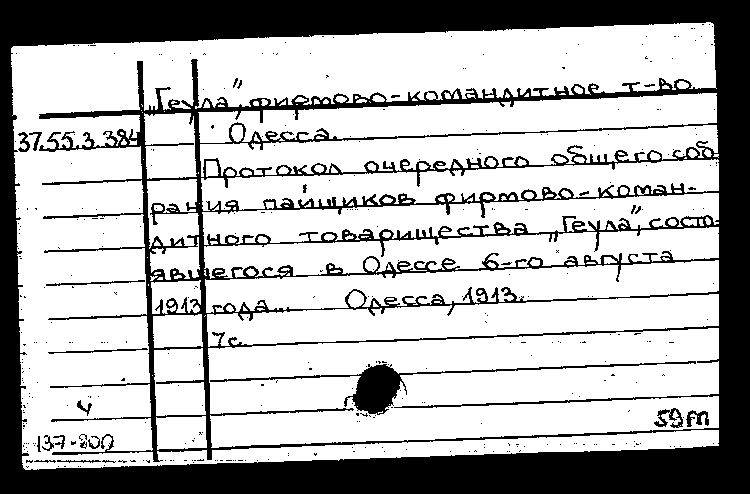 „Геула", фирмово-командитное т-во.
37.55.3.384 Одесса.
Протокол очередного общего соб-
рания пайщиков фирмово-коман-
дитного товарищества „Геула", состо-
явшегося в Одессе 6-го августа
1913 года... Одесса, 1913.
7с.
137-800